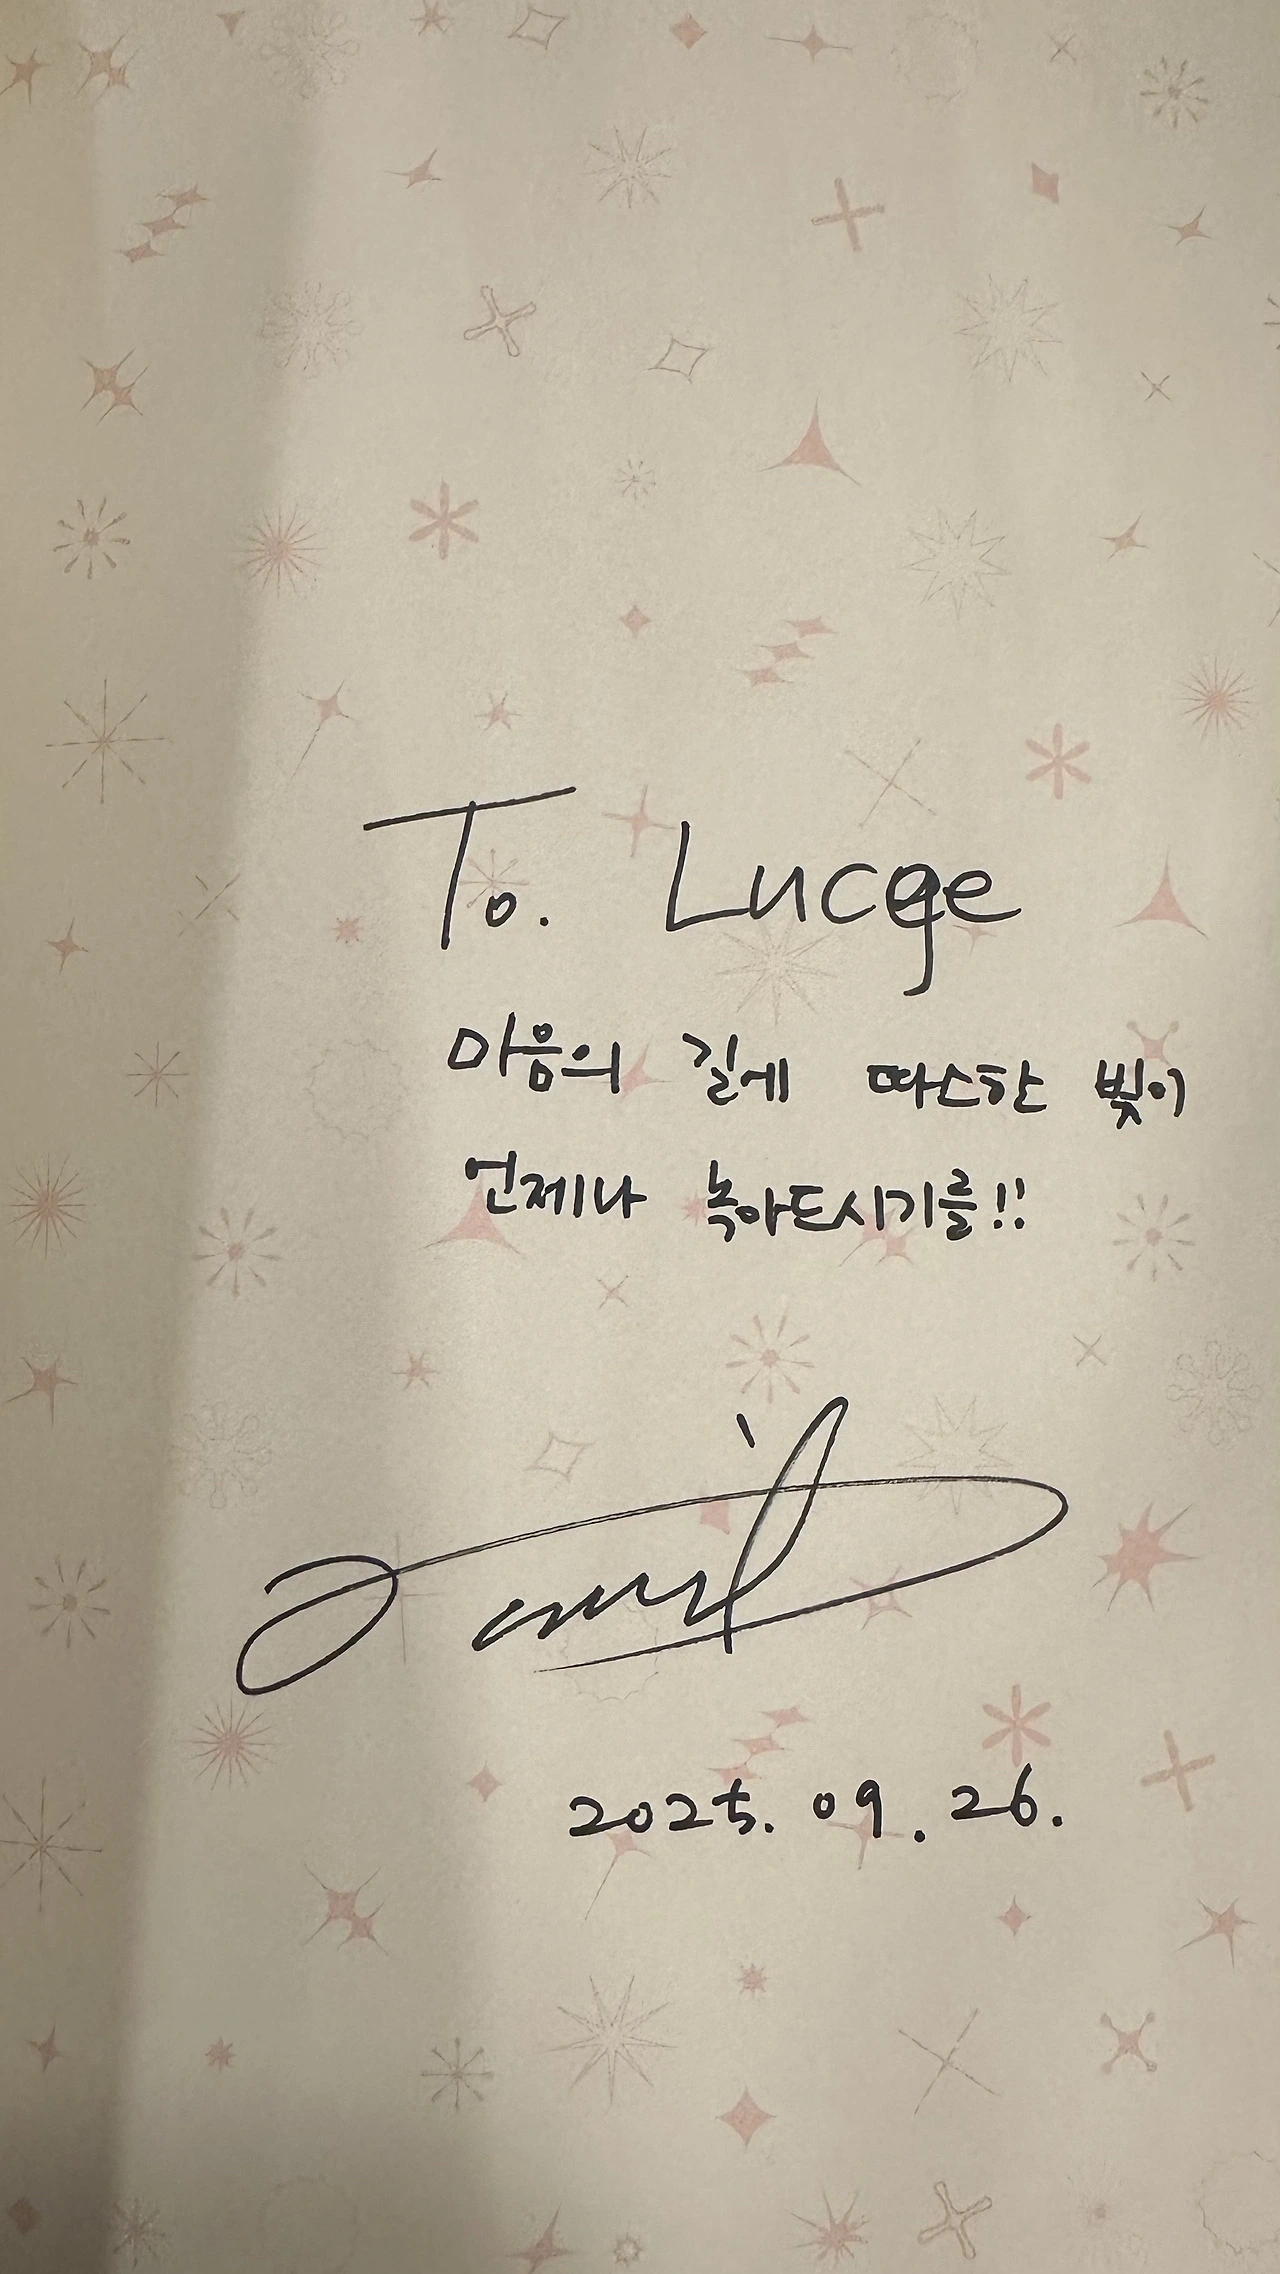 To.
마음의 길에 따스한 빛이
언제나 녹아드시기를!!
2025. 09. 26.